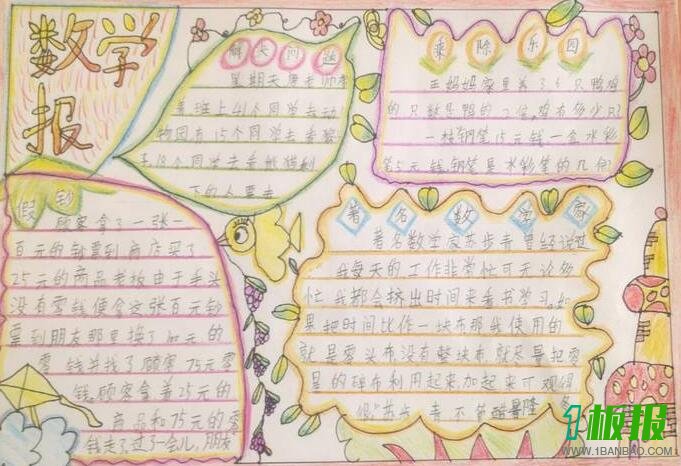 数学
报
解决问题
星期天唐老师带
着班上41个同学去动
物园有15个同学去看猴
子18个同学去看熊猫剩
下的人要去
乘除乐园
王妈妈家里养了5只鸭鸡
的只数是鸭的2倍鸡有多少只
一枝钢笔15元钱一盒水彩
笔5元钱钢笔是水彩笔的几倍
假钞
顾客拿了一张一
百元的钞票到商店买了
25元的商品老板由于手头
没有零钱便拿这张百元钞
票到朋友那里换了100元的
零钱并找了顾客75元零
钱顾客拿着25元的
商品和75元的零
钱走了过了一会儿,朋友
著名数学家
著名数学家苏步青曾经说过
我每天的工作非常忙可无论多
忙我都会挤出时间来看书学习如
果把时间比作一块布那我使用的
就是零头布没有整块布就尽量把零
星的碎布利用起来加起来可观
1板报
WWW.1BANBAO.COM